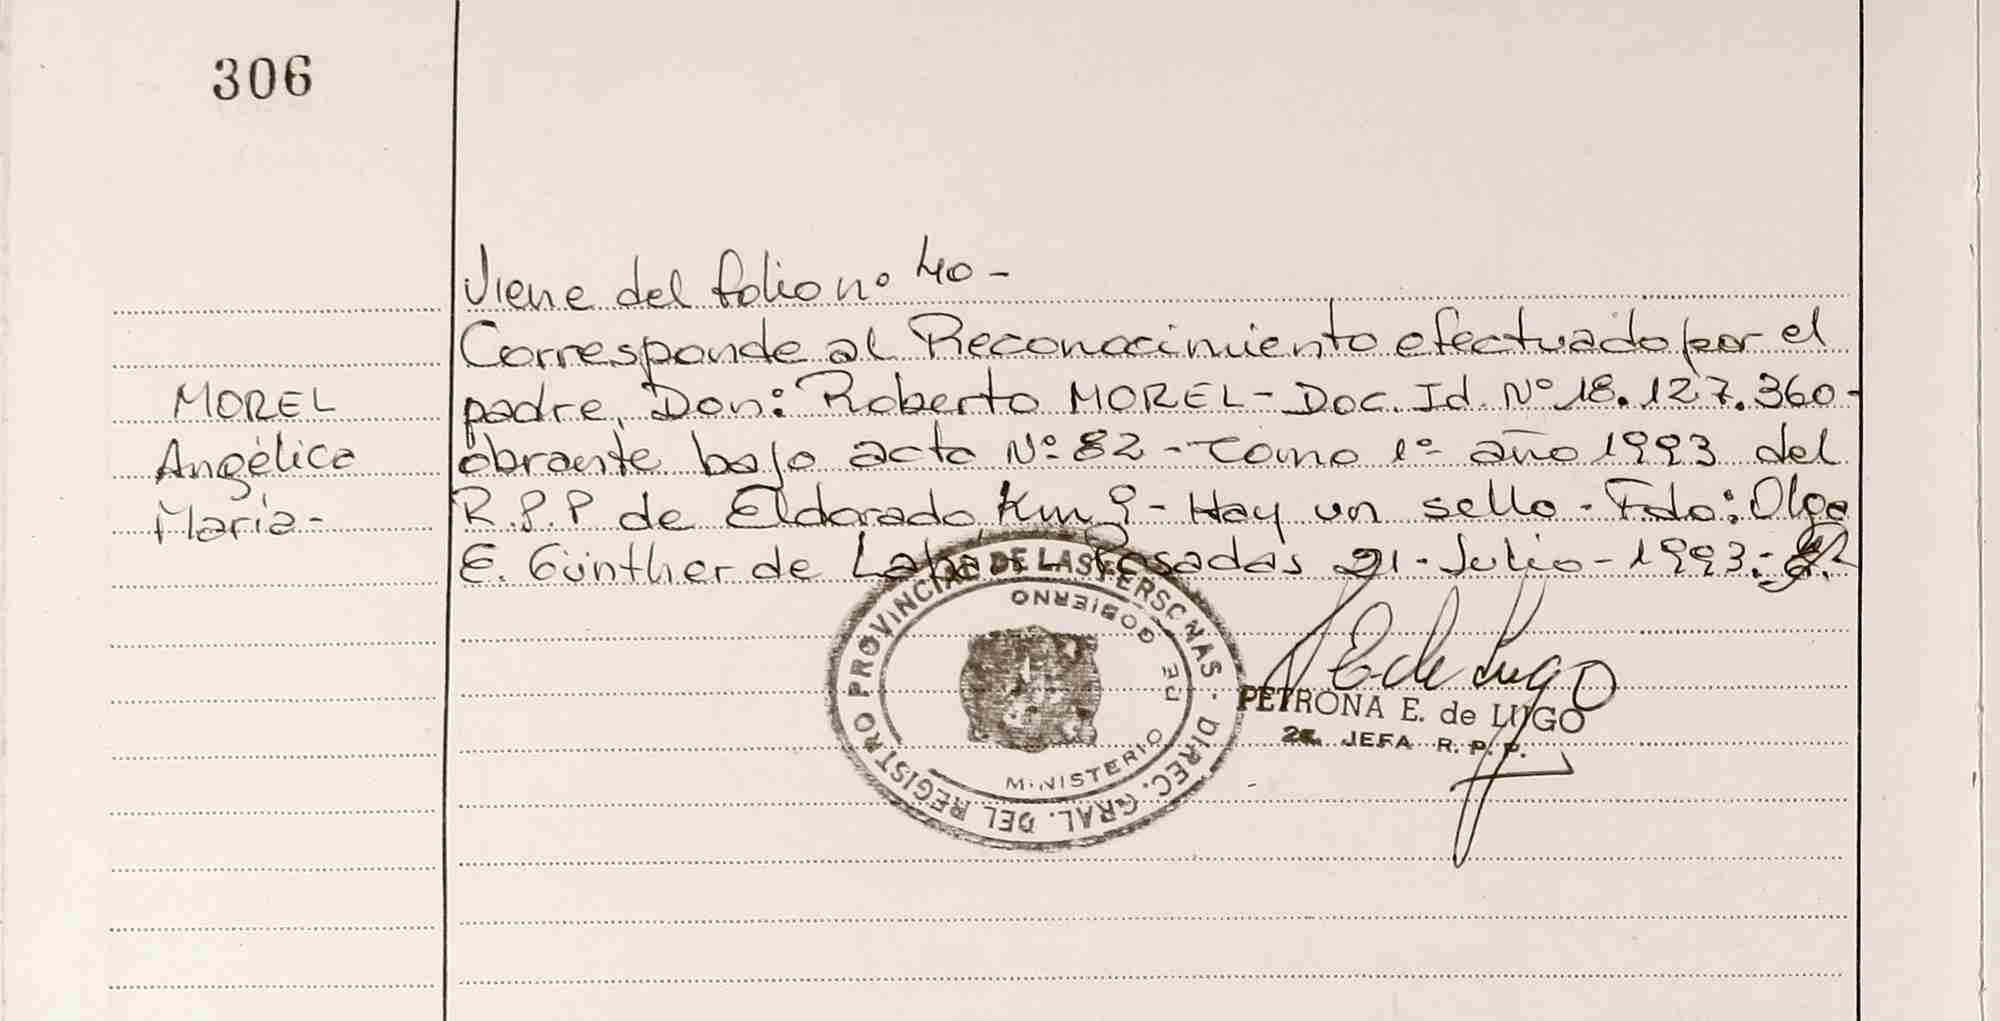 306
Viene del folio nº 40-
Corresponde al Reconocimiento efectuado por el
MOREL
padre, Don: Roberto MOREL- Doc. Id. Nº 18.127.360-
Angélica
obrante bajo acta Nº 82 - Tomo 1º año 1993 del
María-
R.P.P de Eldorado, Km 9- Hay un sello. Fdo: Olga
E. Günther de Posadas 21. Julio-1993.-
DIREC. GRAL. DEL REGISTRO PROVINCIAL DE LAS PERSONAS
MINISTERIO DE GOBIERNO
E de Lugo
PETRONA E. de LUGO
JEFA R. P. P.